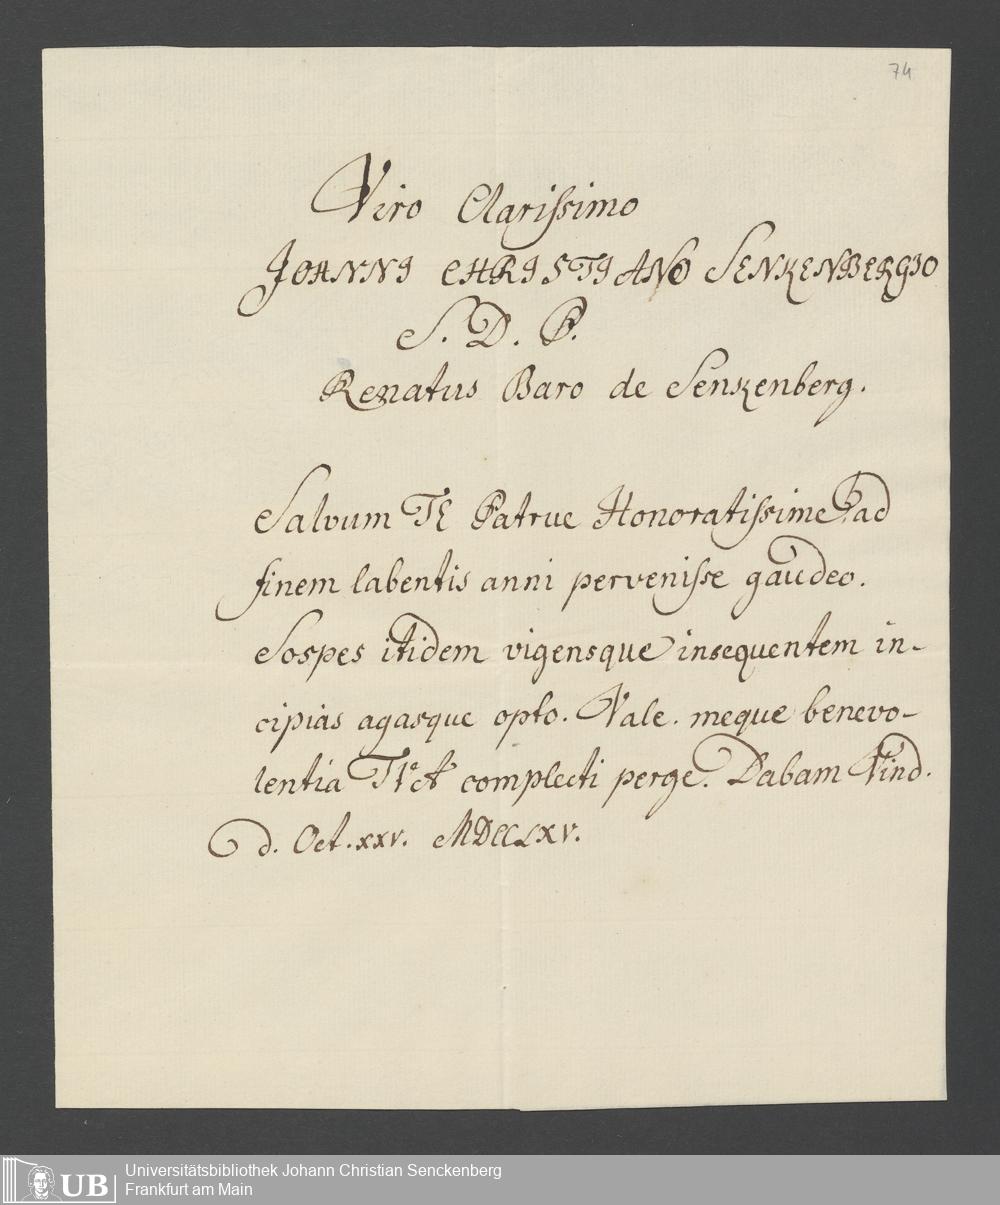 74
Viro Clarissimo
JOHANNI CHRISTIANO SENKENBERGIO
S. D. P.
Renatus Baro de Senkenberg.
Salvum TE Patrue Honoratissime ad
finem labentis anni pervenisse gaudeo.
Sospes itidem vigensque insequentem in-
cipias agasque opto. Vale. meque benevo-
lentia TVA complecti perge. Dabam Vind.
d. Oct. xxv. MDCCLXV.
UB
Universitätsbibliothek Johann Christian Senckenberg
Frankfurt am Main